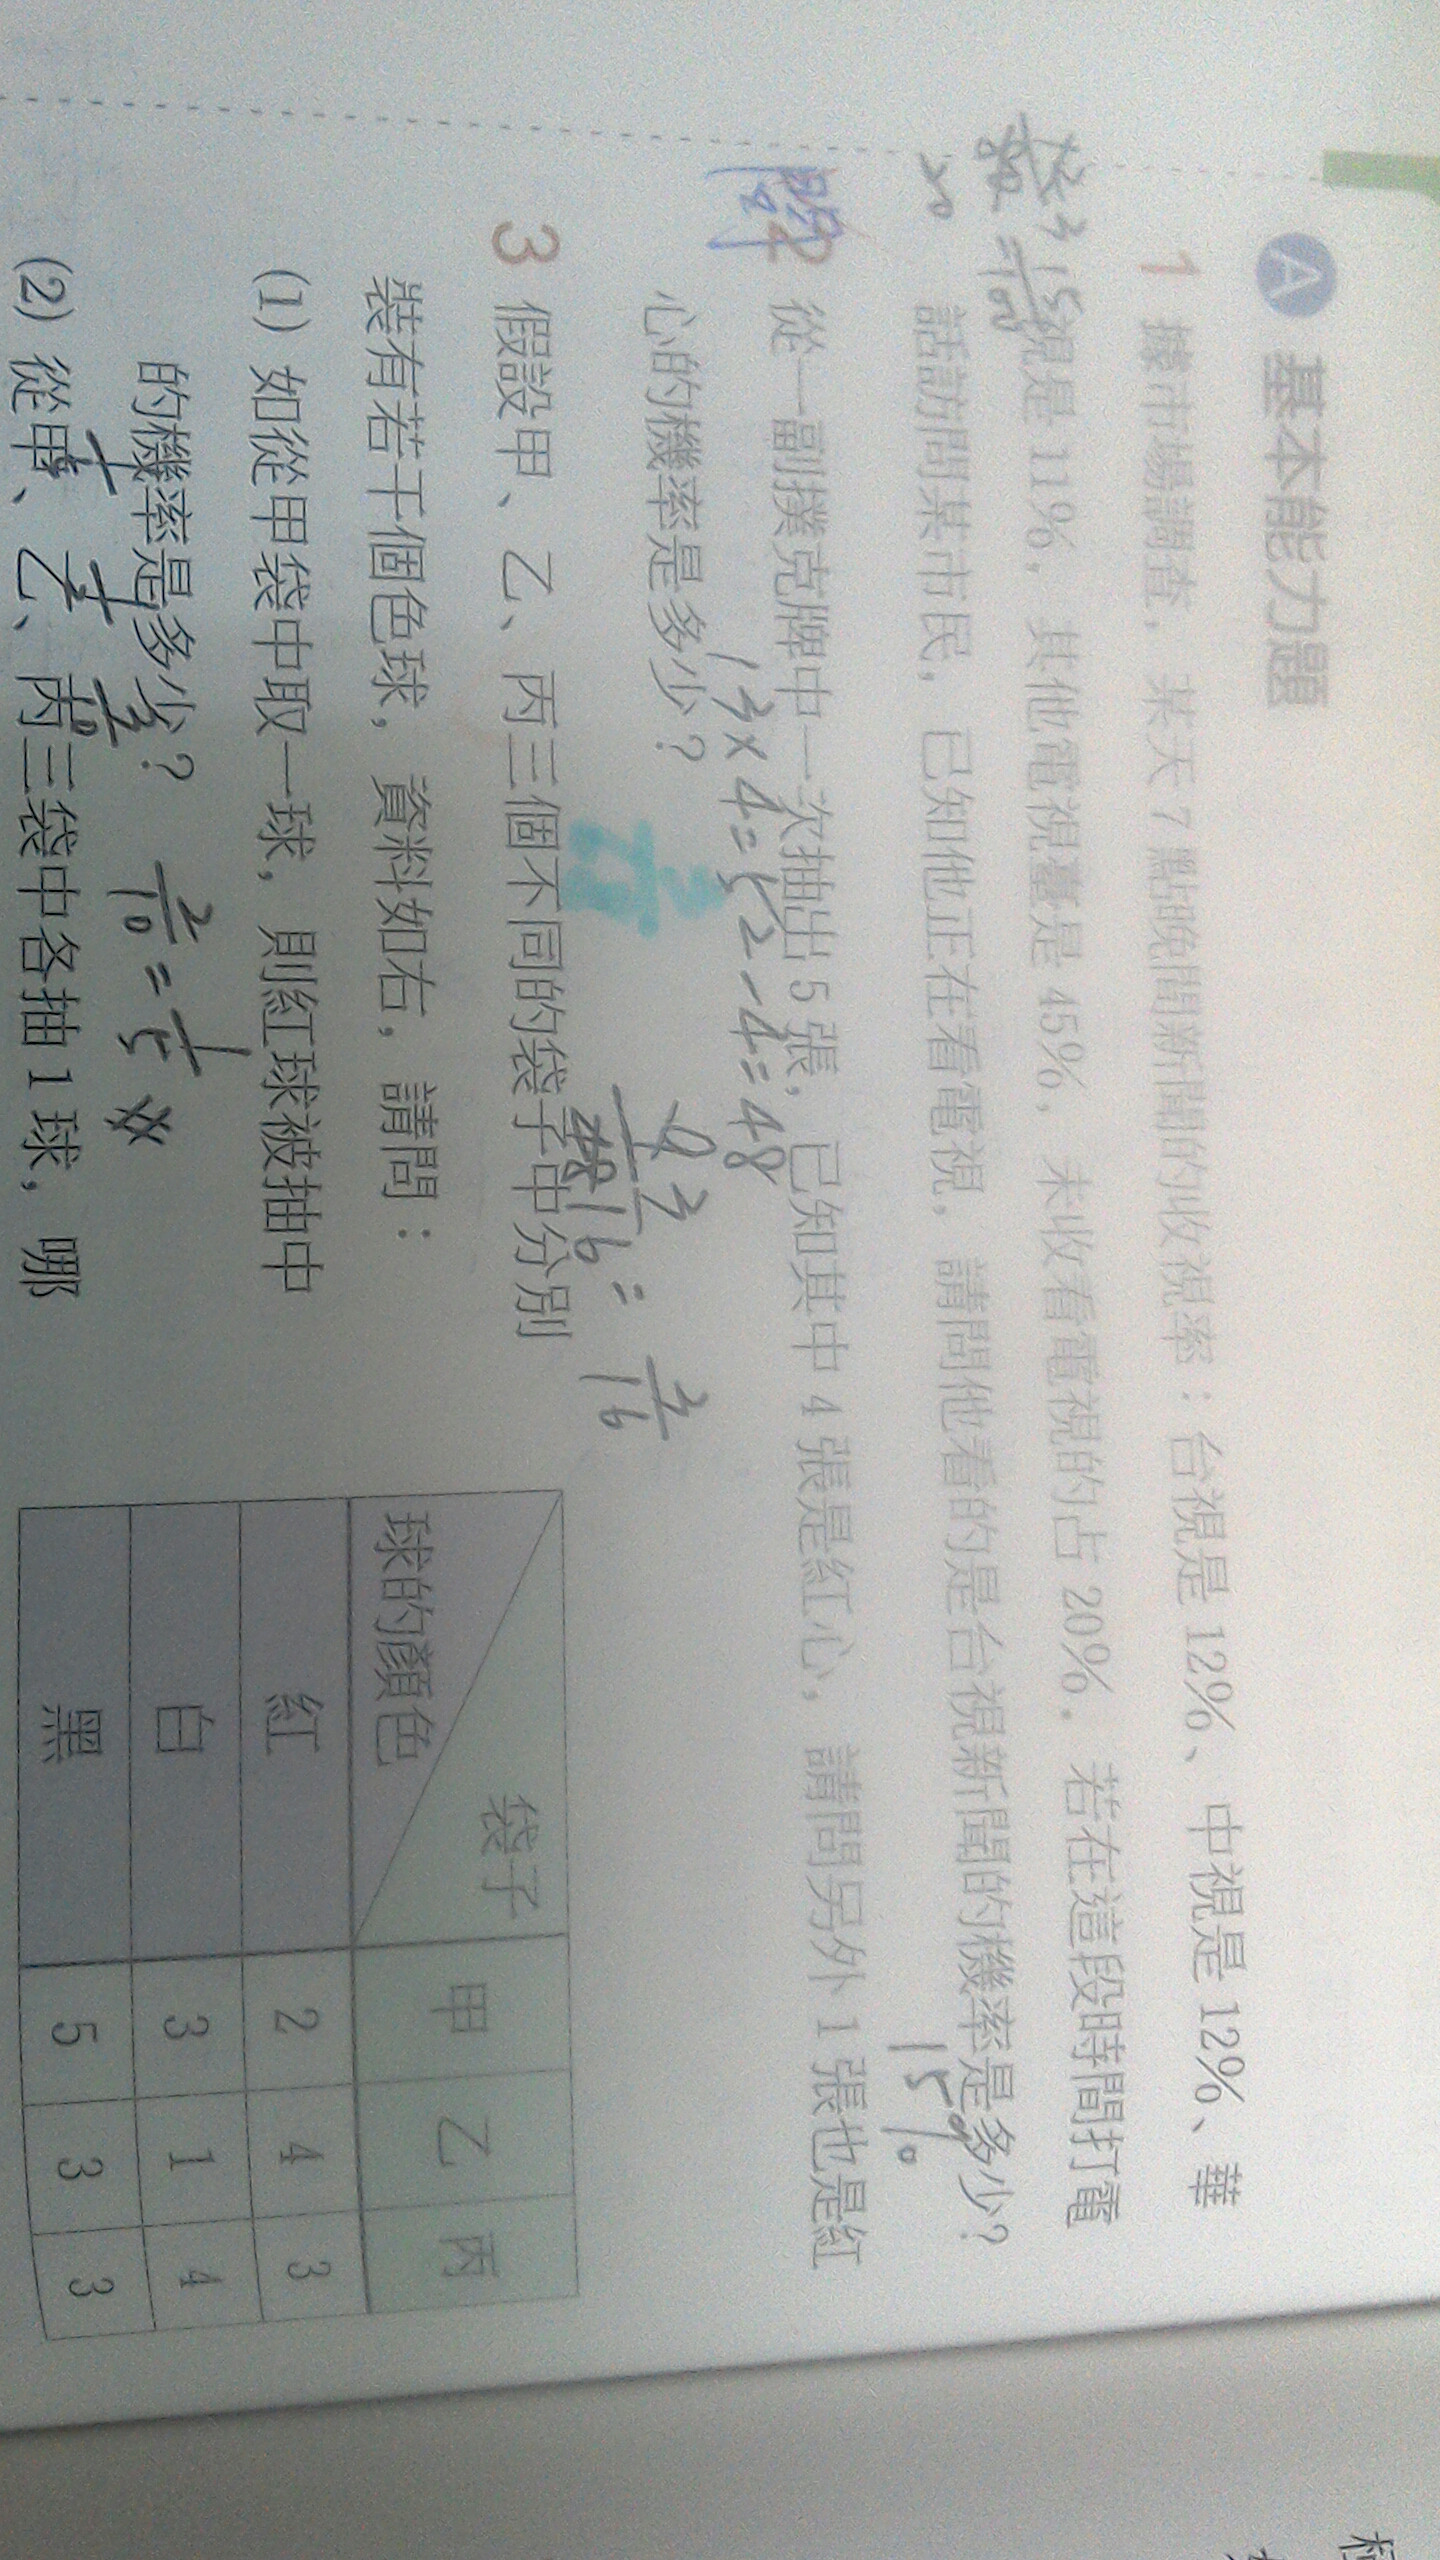 A 基本能力題
1 據市場調查，某天7點晚間新聞的收視率：台視是12%、中視是12%、華
視是11%，其他電視臺是45%，未收看電視的占20%。若在這段時間打電
話訪問某市民，已知他正在看電視，請問他看的是台視新聞的機率是多少？
15%
2 從一副撲克牌中一次抽出5張，已知其中4張是紅心，請問另外1張也是紅
心的機率是多少？
13×4=52-4=48
3/16
3 假設甲、乙、丙三個不同的袋子中分別
裝有若干個色球，資料如右，請問：
(1) 如從甲袋中取一球，則紅球被抽中
的機率是多少？
2/10=1/5
(2) 從甲、乙、丙三袋中各抽1球，哪
袋子
球的顏色
甲 乙 丙
紅 2 4 3
白 3 1 4
黑 5 3 3